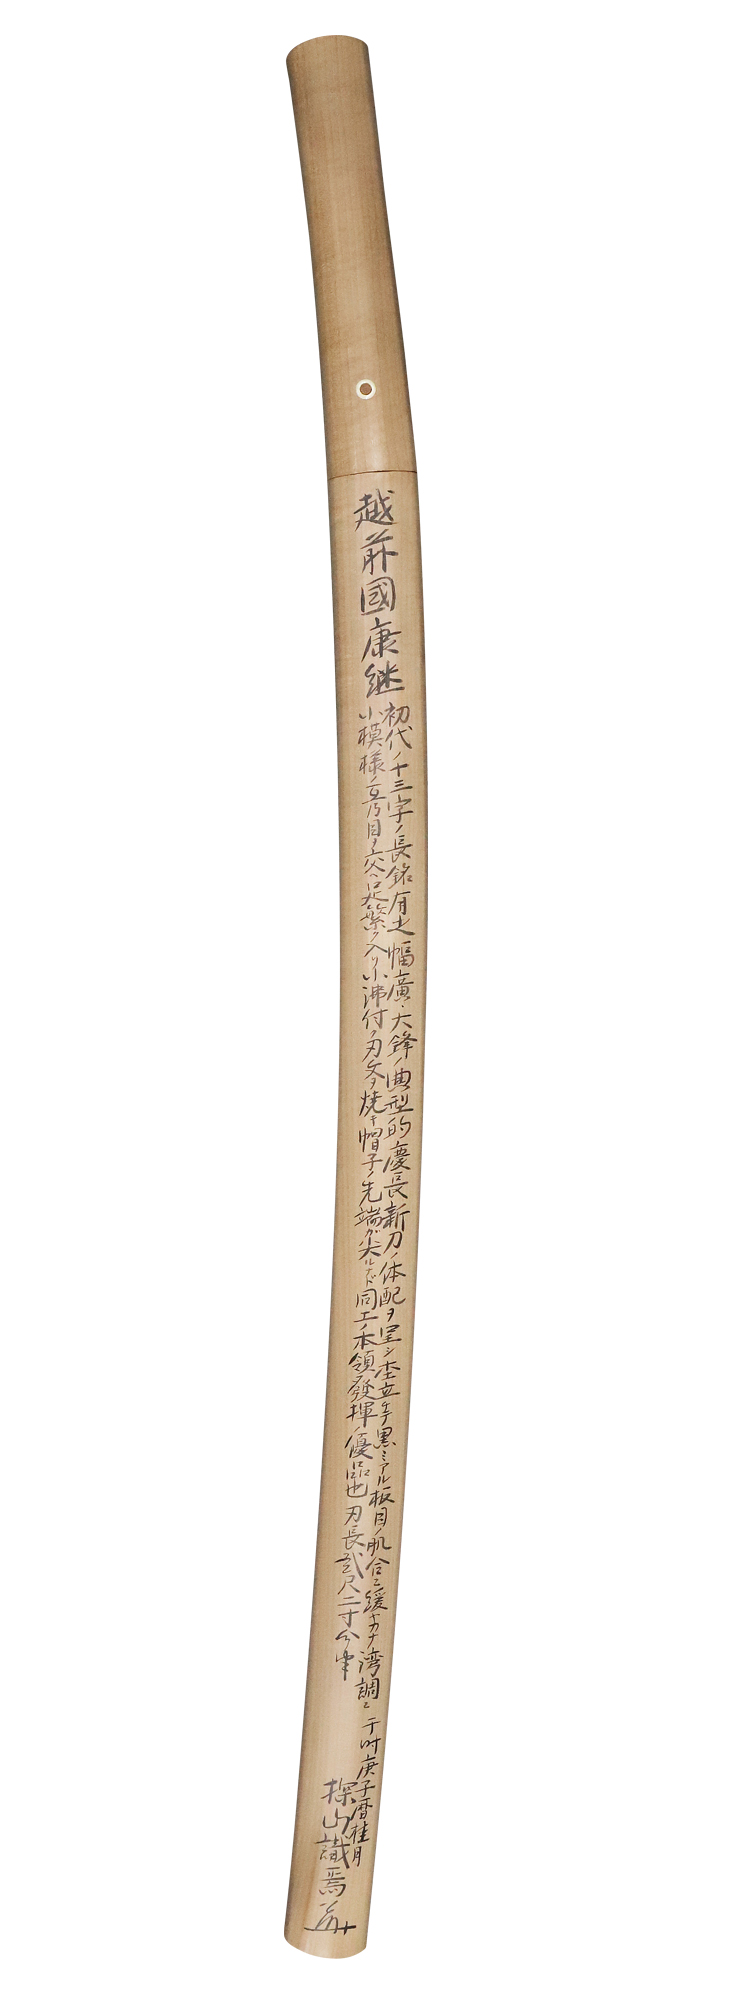 越前國康継
初代ノ十三字ノ長銘有之幅廣ク大鋒ノ典型的慶長新刀ノ体配ヲ呈シ杢立チテ黒ミアル板目ノ肌合ニ緩ヤカナ湾調ニ
小模様ノ互乃目ヲ交ヘ足繁ク入リ小沸付ク刃文ヲ焼キ帽子ノ先端ガ尖ルナド同工ノ本領発揮ノ優品也刃長貳尺二寸
于時庚子暦桂月
探山識焉